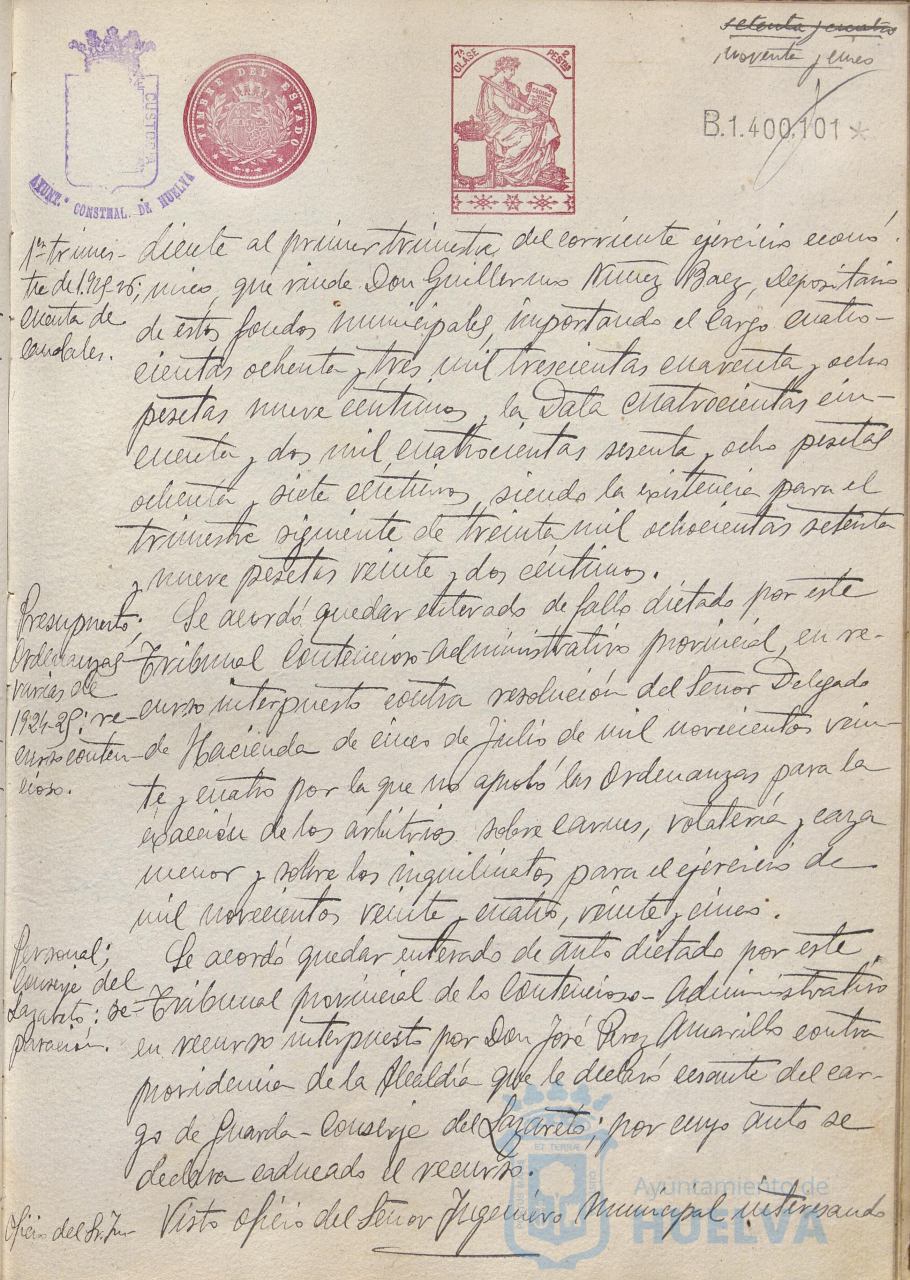 setenta y cuatro
noventa y cinco
B.1.400,101 *
TIMBRE DEL ESTADO
7ª CLASE 2 PESTAS
CUSTODIA
AYUNT. CONSTNAL. DE HUELVA
1er trimes-
tre de 1925-26;
cuenta de
caudales.
diente al primer trimestre del corriente ejercicio econó-
mico, que rinde Don Guillermo Nuñez Baez, Depositario
de estos fondos municipales, importando el Cargo cuatro-
cientas ochenta y tres mil trescientas cuarenta y ocho
pesetas nueve céntimos, y la Data cuatrocientas cin-
cuenta y dos mil cuatrocientas sesenta y ocho pesetas
ochenta y siete céntimos, siendo la existencia para el
trimestre siguiente de treinta mil ochocientas setenta
y nueve pesetas veinte y dos céntimos.
Presupuesto;
Ordenanzas
varias de
1924-25: re-
curso conten-
cioso.
Se acordó quedar enterado de fallo dictado por este
Tribunal Contencioso-administrativo provincial, en re-
curso interpuesto contra resolución del Señor Delegado
de Hacienda de cinco de Julio de mil novecientos vein-
te y cuatro por la que no aprobó las Ordenanzas para la
exacción de los arbitrios sobre carnes, volatería y caza
menor y sobre los inquilinatos para el ejercicio de
mil novecientos veinte y cuatro, veinte y cinco.
Personal;
Conserje del
Lazareto: se-
paración.
Se acordó quedar enterado de auto dictado por este
Tribunal provincial de lo Contencioso-Administrativo
en recurso interpuesto por Don José Perez Amarillo contra
providencia de la Alcaldía que le declaró cesante del car-
go de Guarda-Conserje del Lazareto; por cuyo auto se
declara caducado el recurso.
Oficio del Sr. In-
Visto oficio del Señor Ingeniero Municipal interesando
Ayuntamiento de
HUELVA